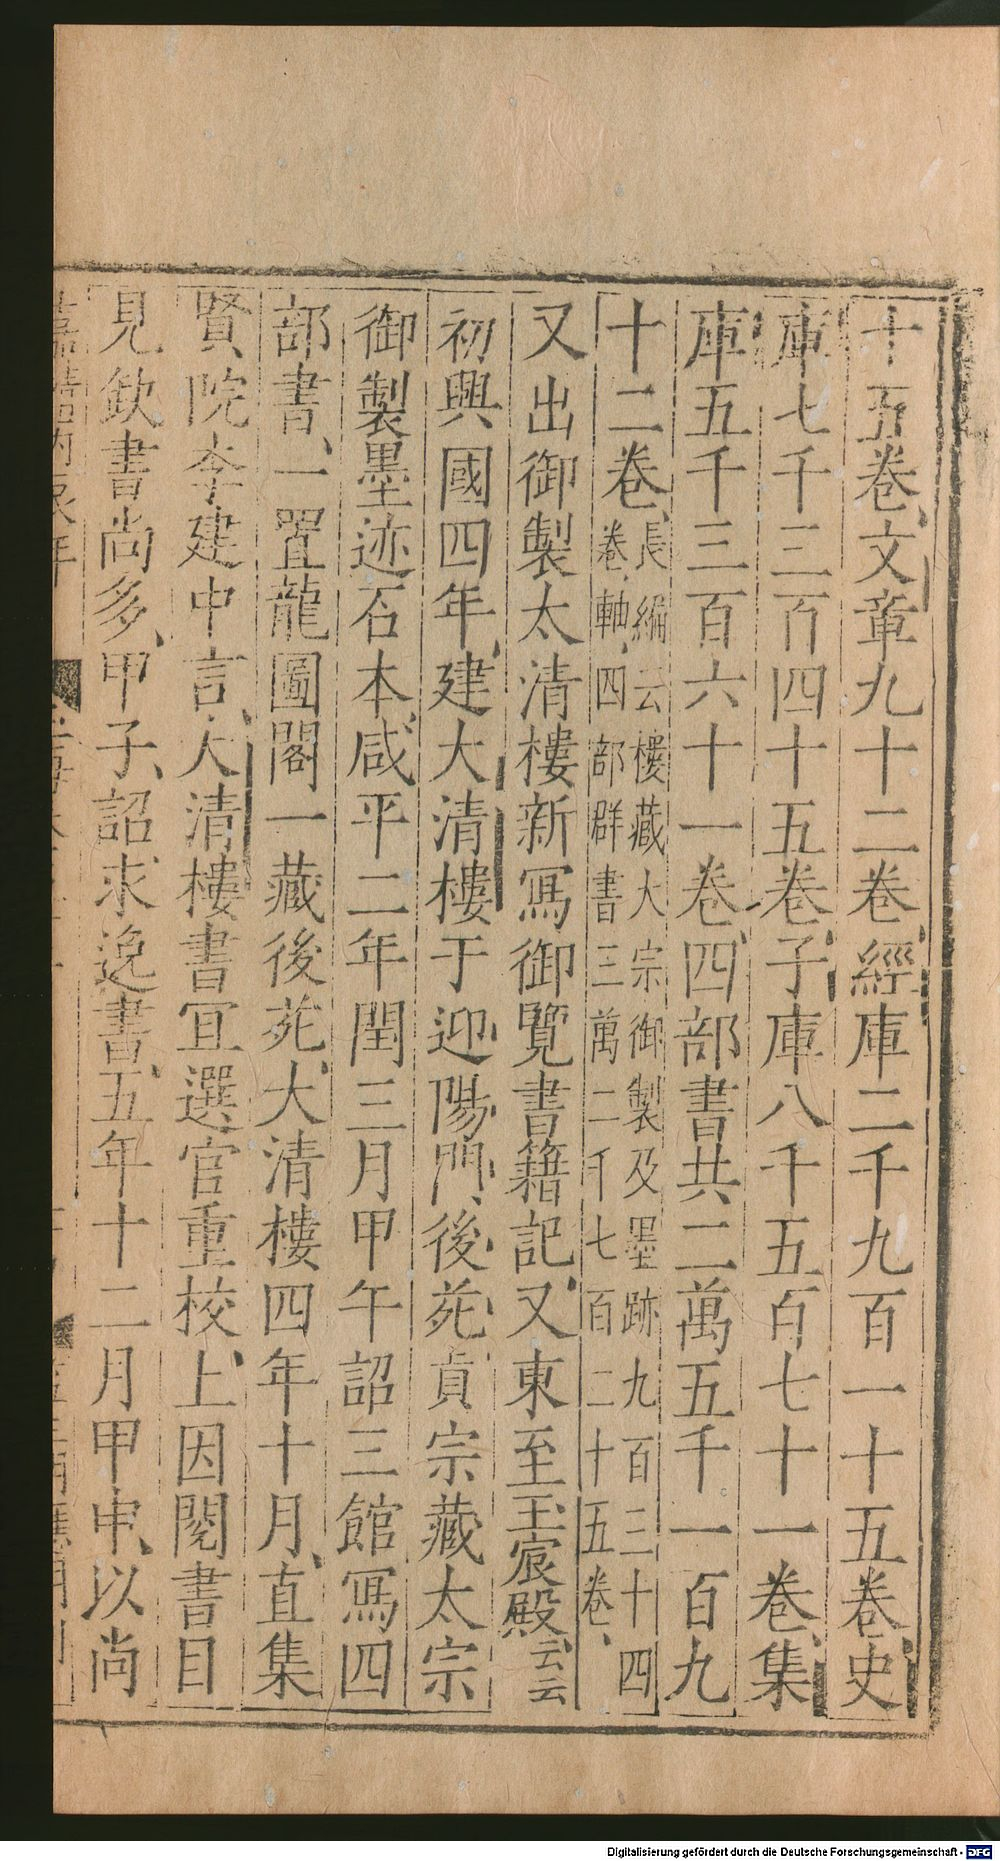 十五卷文章九十二卷經庫二千九百一十五卷史
庫七千三百四十五卷子庫八千五百七十一卷集
庫五千三百六十一卷四部書共二萬五千一百九
十二卷長編云樓藏太宗御製及墨跡九百三十四
卷軸四部群書三萬二千七百二十五卷
又出御製太清樓新寫御覽書籍記又東至玉宸殿云云
初興國四年建太清樓于迎陽門後苑真宗藏太宗
御製墨迹石本咸平二年閏三月甲午詔三館寫四
部書一置龍圖閣一藏後苑太清樓四年十月直集
賢院李建中言太清樓書宜選官重校上因閱書目
見欽書尚多甲子詔求逸書五年十二月甲申以尚
Digitalisierung gefördert durch die Deutsche Forschungsgemeinschaft - DFG